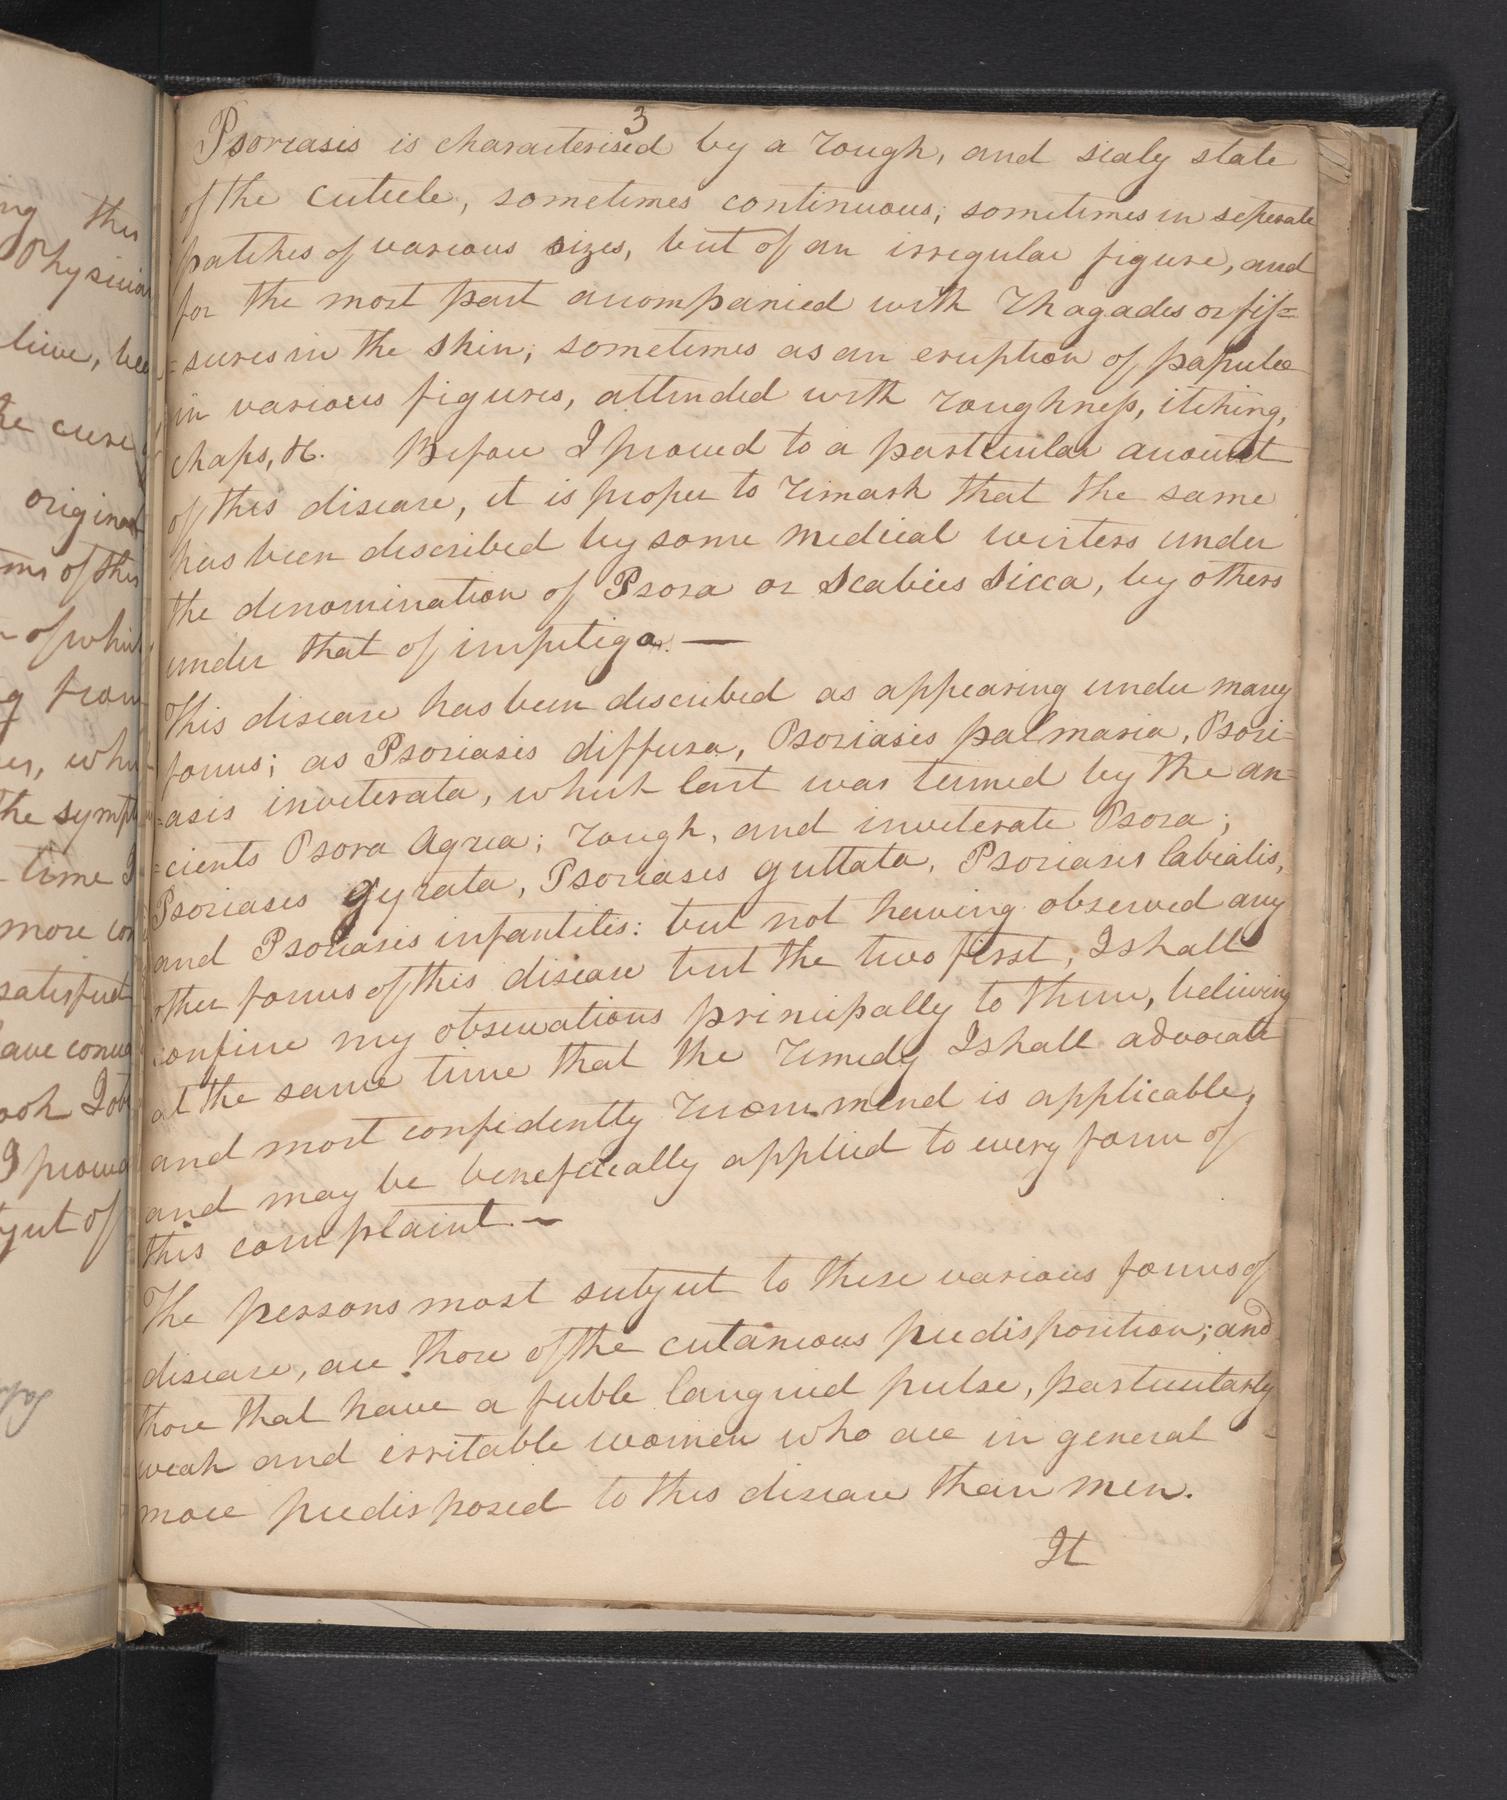 ng this
Physician
lieve, bee
he cure of
original
ms of this
of whic
g from
er, whi
the sympt
time I
more con
satisfact
have convi
ook I ob
I proceed
bject of
3
Psoreasis is characterised by a rough, and scaly state
of the cuticle, sometimes continuous; sometimes in seperate
patches of various sizes, but of an irregular figure, and
for the most part accompanied with rhagades or fis=
=sures in the skin; sometimes as an eruption of papulae
in various figures, attended with roughness, itching,
chaps, &c. Before I proceed to a particular account
of this disease, it is proper to remark that the same
has been described by some medical writers under
the denomination of Psora or Scabies Sicca, by others
under that of impetigo. —
This disease has been described as appearing under many
forms; as Psoriasis diffusa, Psoriasis palmaria, Psori=
=asis inveterata, which last was termed by the an=
=cients Psora Agria; rough, and inveterate Psora;
Psoriasis gyrata, Psoriasis guttata, Psoriasis labialis,
and Psoriasis infantilis: but not having observed any
other forms of this disease but the two first, I shall
confine my observations principally to them, believing
at the same time that the remedy I shall advocate
and most confidently recommend is applicable,
and may be beneficially applied to every form of
this complaint. —
The persons most subject to these various forms of
disease, are those of the cutaneous predisposition; and
those that have a feeble languid pulse, particularly
weak and irritable women who are in general
more predisposed to this disease than men.
It